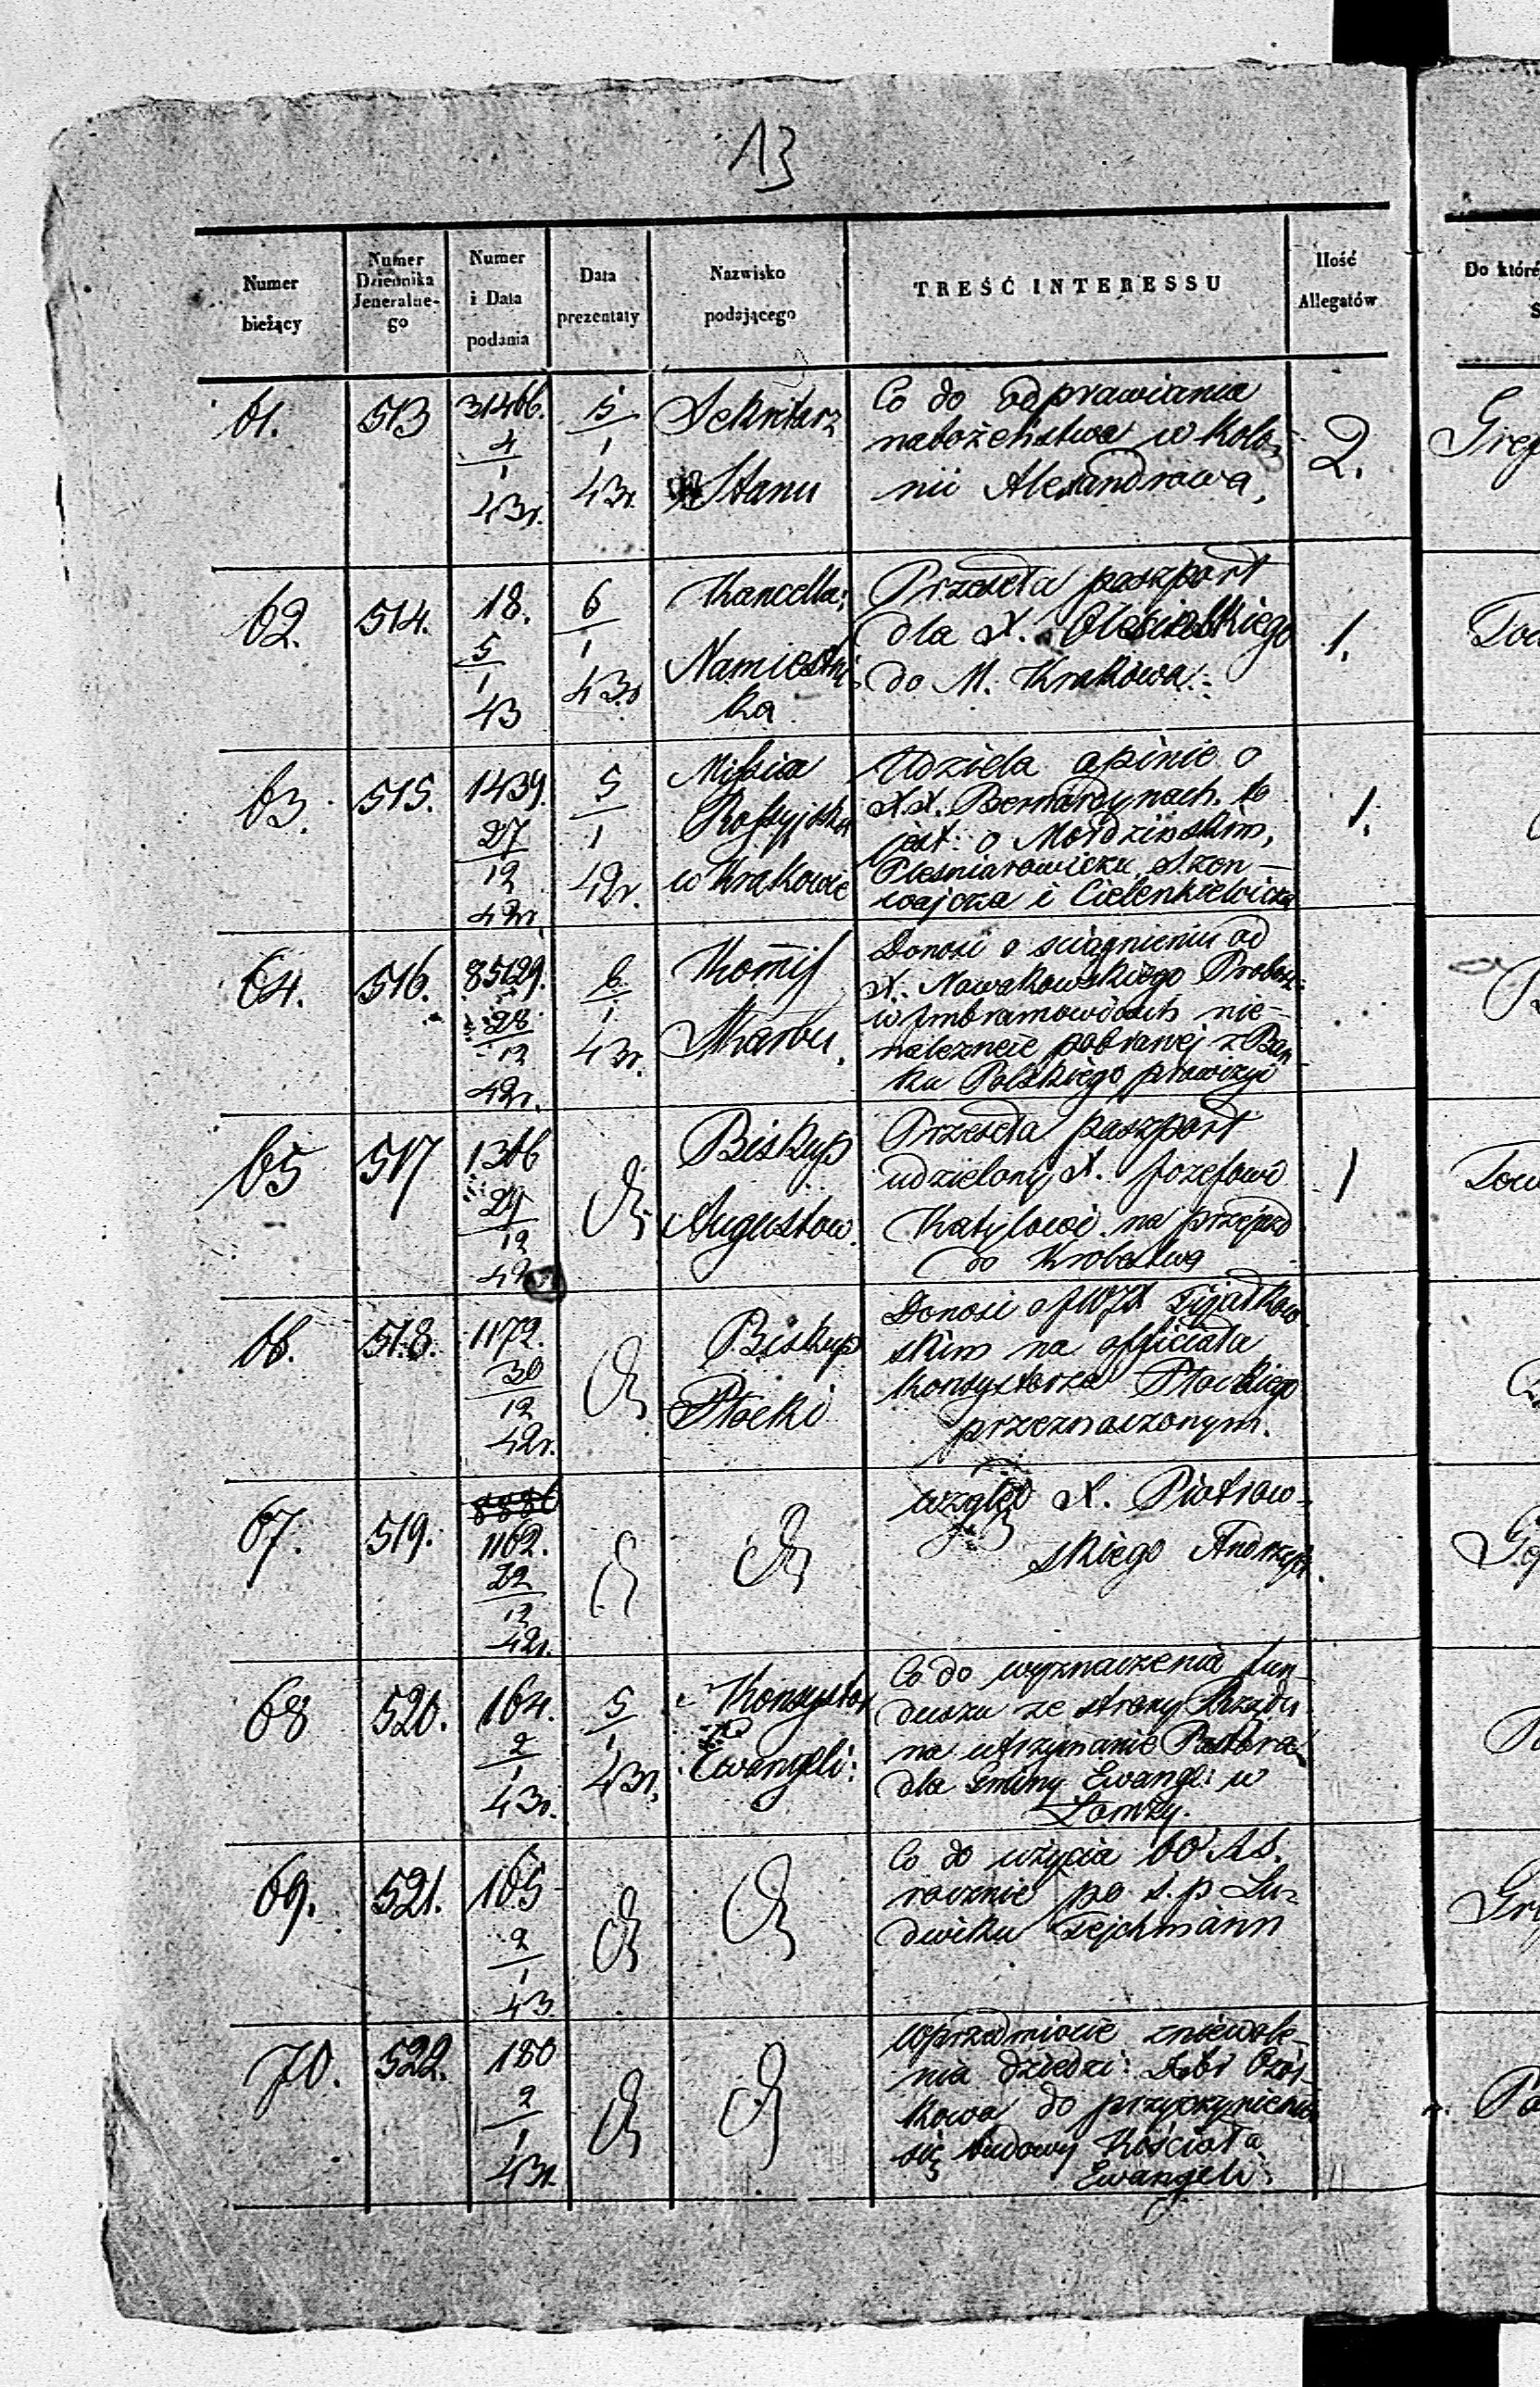 13
Numer bieżący
Numer Dziennika Jeneralnego
Numer i Data podania
Data prezentaty
Nazwisko podającego
TREŚĆ INTERESSU
Ilość Allegatów
Do któré
61. 513 31466. 4/1 43r. 5/1 43r. Sekretarz Stanu
Co do odprawiania
nabożeństwa w Kolo-
nii Alexandrowa,
2.
62. 514. 18. 5/1 43 6/1 43r Kancella: Namiestni ka
Przeseła paszport
dla X.
do M. Krakowa.
1.
63. 515. 1439. 27/12 42r. 5/1 42r. Missia Rossyjska w Krakowie
Udziela opinie o
X.X. Bernardynach. to
jest: o
i Cielenkiewiczu
1.
64. 516. 85129. 28/12 42r. 6/1 43r. Kommis Skarbu.
Donosi o sciągnieniu od
X. Nowakowskiego Probosz-
w Imbramowicach nie-
należnie pobranej z Ban
ku Polskiego prowizyi
65 517 1306 29/12 42 Biskup Augustow.
Przeseła paszport
udzielony X. Jozefowi
na przejazd
do Krolestwa
1
66. 518. 1172. 30/12 42r. Biskup Płocki
Donosi o JWJX
skim na officiała
Konsystorza Płockiego
przeznaczonym.
67. 519. 1162. 22/12 42r.
wzglę X. Piotrow-
skiego Andrzeja.
68 520. 164. 2/1 43r. 5/1 43r. Konsystor Ewangeli:
Co do wyznaczenia fun-
duszu ze strony Rządu
na utrzymanie Pastora
dla Gminy Ewangl: w
Łomży.
69. 521. 165 2/1 43
Co do użycia
rocznie po ś.p Lu-
dwiku Tejchmann
70. 522. 180 2/1 43r.
W przedmiocie zniewole-
nia dziedzi: Dóbr Ozor-
kowa do przyczynienia
się budowy Kościoła
Ewangeli: